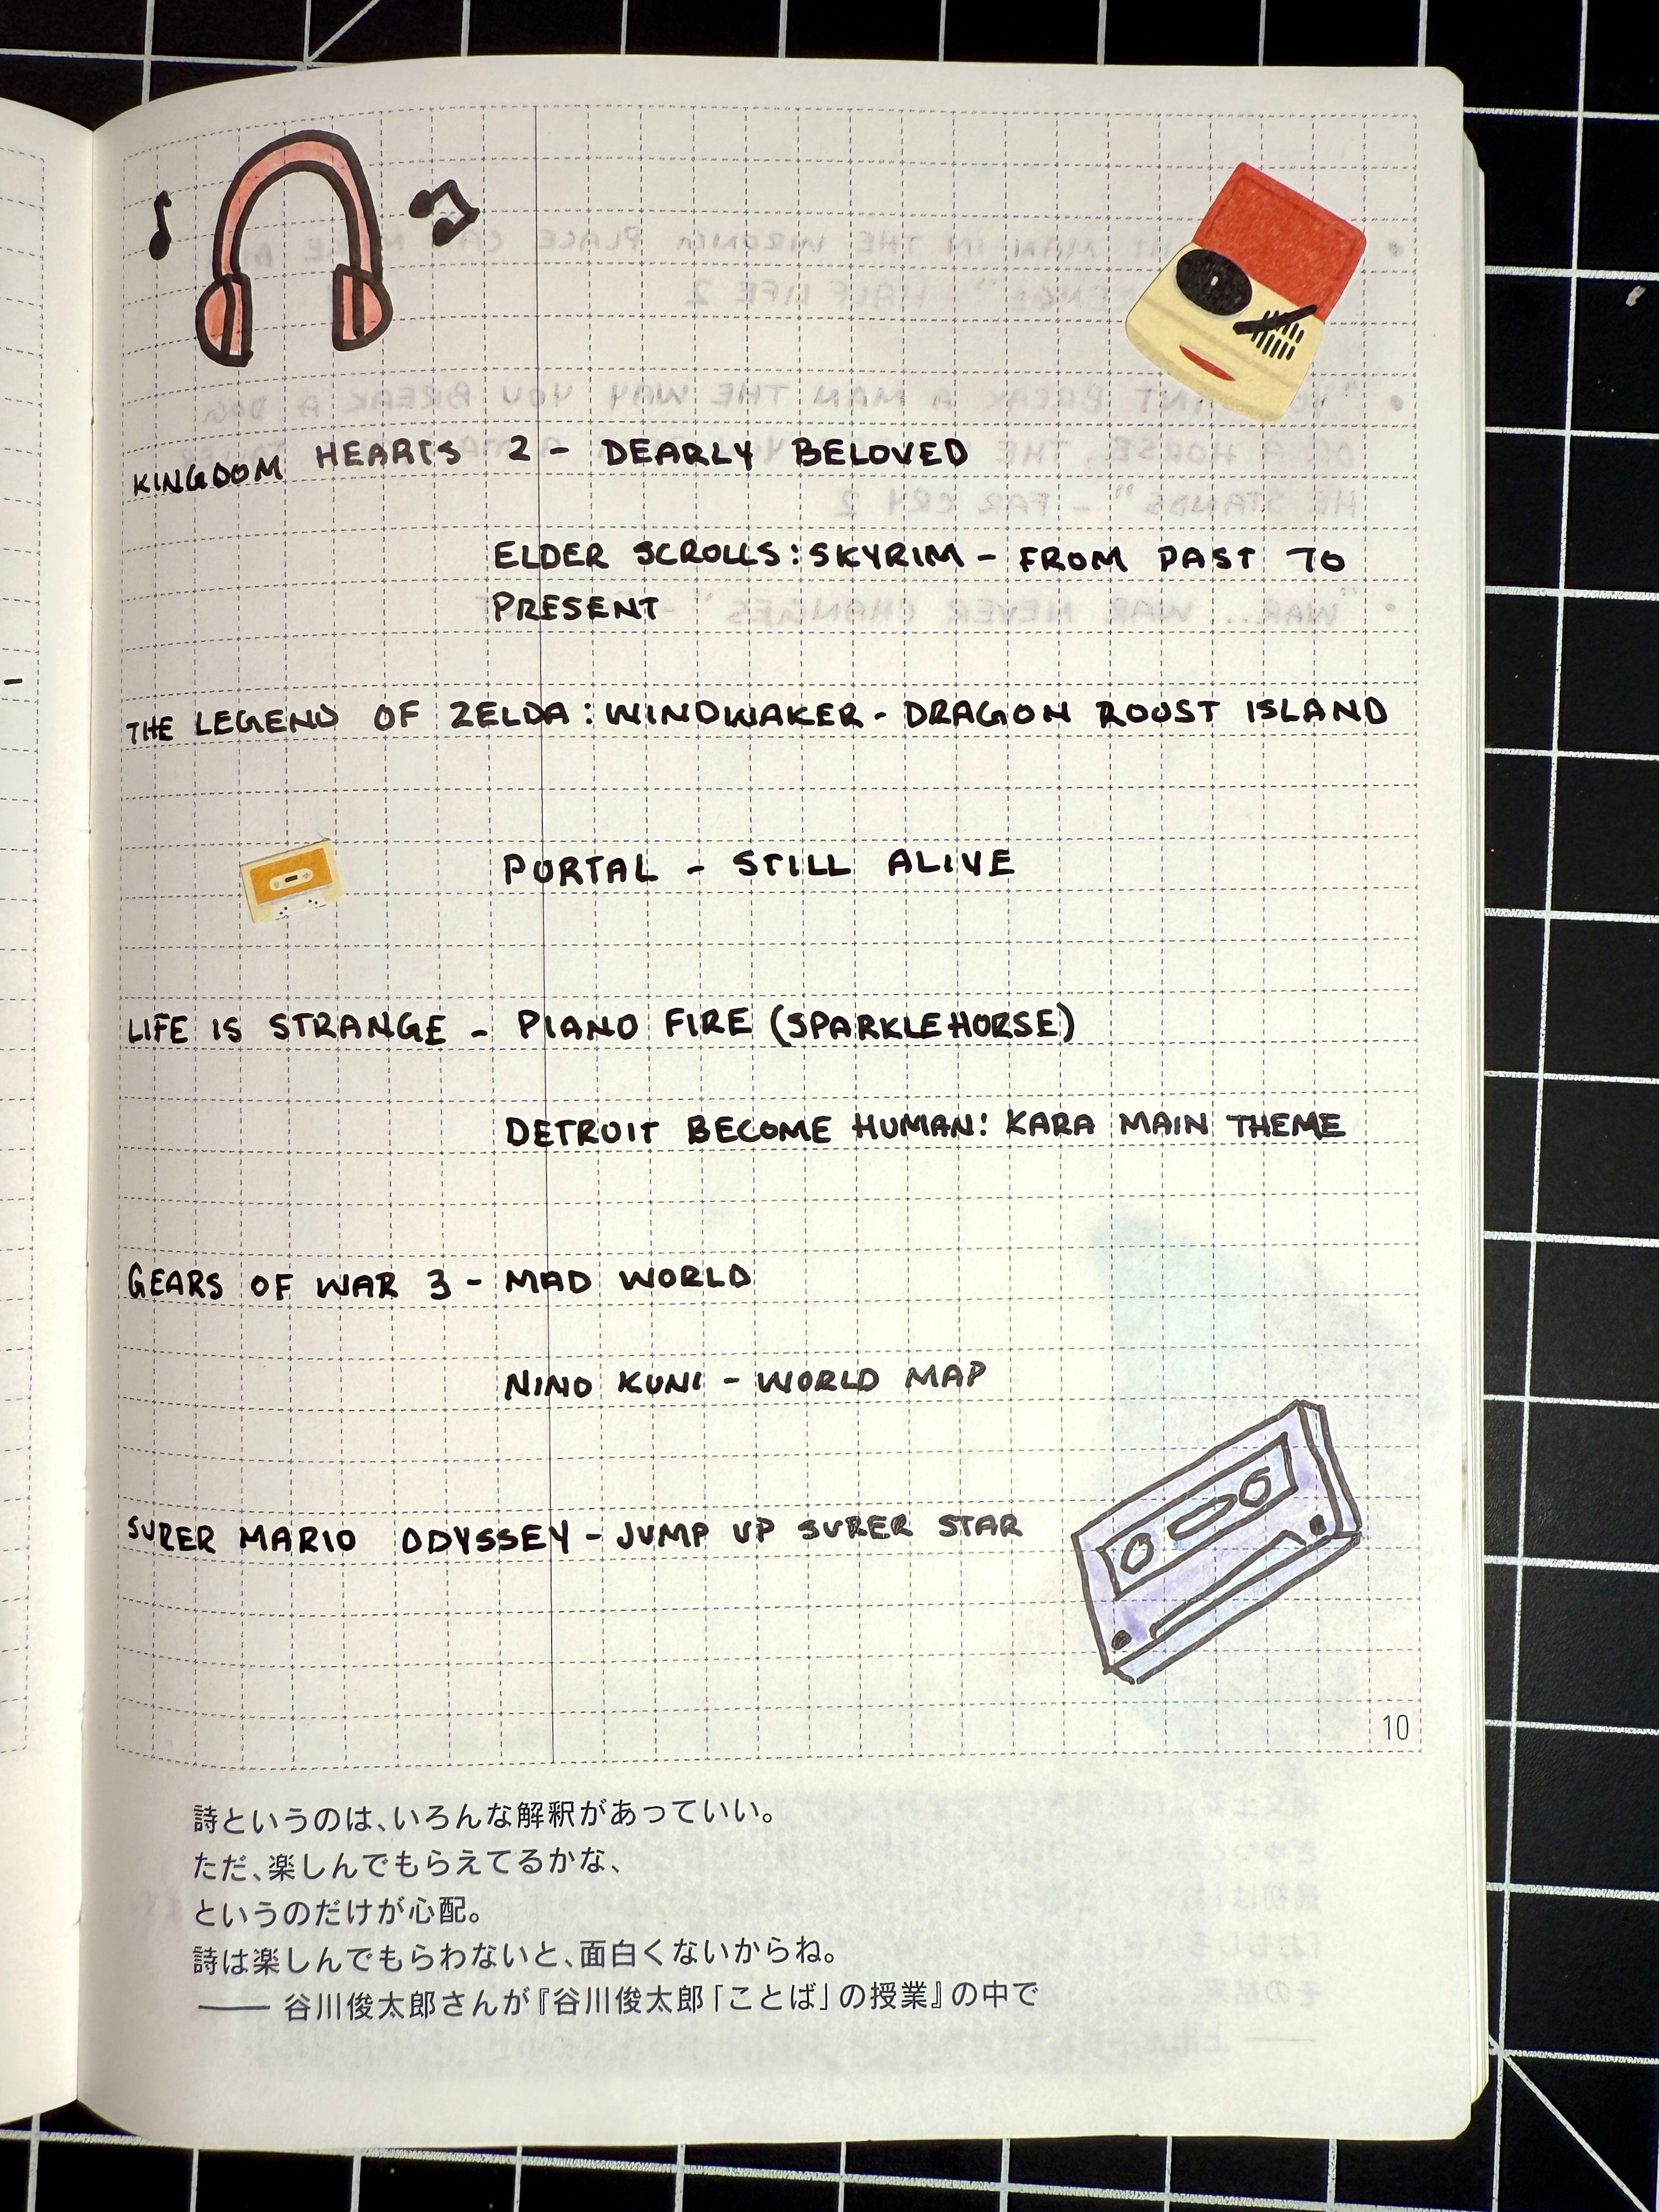 KINGDOM HEARTS 2 - DEARLY BELOVED
ELDER SCROLLS: SKYRIM - FROM PAST TO
PRESENT
THE LEGEND OF ZELDA: WINDWAKER - DRAGON ROOST ISLAND
PORTAL - STILL ALIVE
LIFE IS STRANGE - PIANO FIRE (SPARKLEHORSE)
DETROIT BECOME HUMAN: KARA MAIN THEME
GEARS OF WAR 3 - MAD WORLD
NINO KUNI - WORLD MAP
SUPER MARIO ODYSSEY - JUMP UP SUPER STAR
10
詩というのは、いろんな解釈があっていい。
ただ、楽しんでもらえてるかな、
というのだけが心配。
詩は楽しんでもらわないと、面白くないからね。
—— 谷川俊太郎さんが『谷川俊太郎「ことば」の授業』の中で